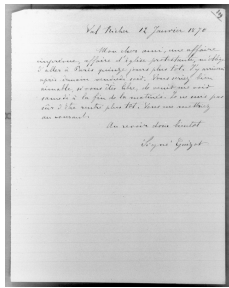 Val Richer 12 Janvier 1870
Mon cher ami, une affaire
imprévue, affaire d'église protestante, m'oblige
d'aller à Paris quinze jours plus tôt. J'y arriverai
après demain vendredi soir. Vous seriez bien
aimable, si vous êtes libre, de venir me voir
samedi à la fin de la matinée. Je ne serai pas
sûr d'être rentré plus tôt. Vous me mettrez
au courant.
Au revoir donc bientôt
Signé Guizot